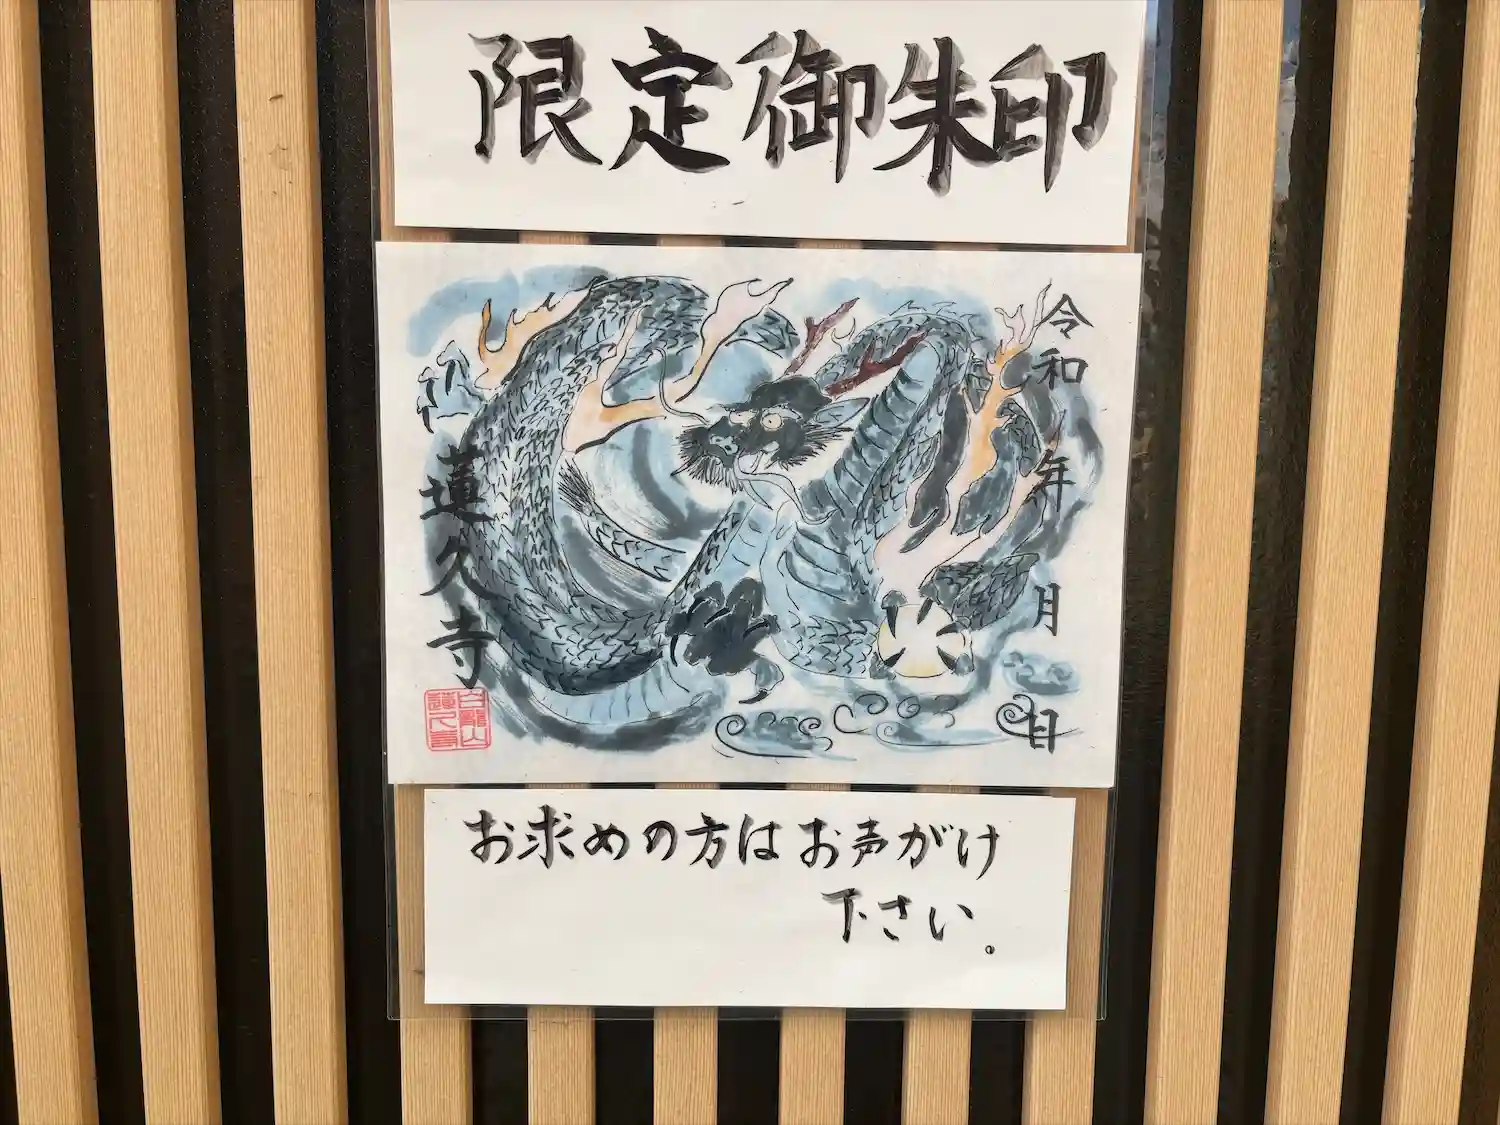 限定御朱印
令和 年 月 日
蓮久寺
白龍山
蓮久寺
お求めの方はお声がけ
下さい。